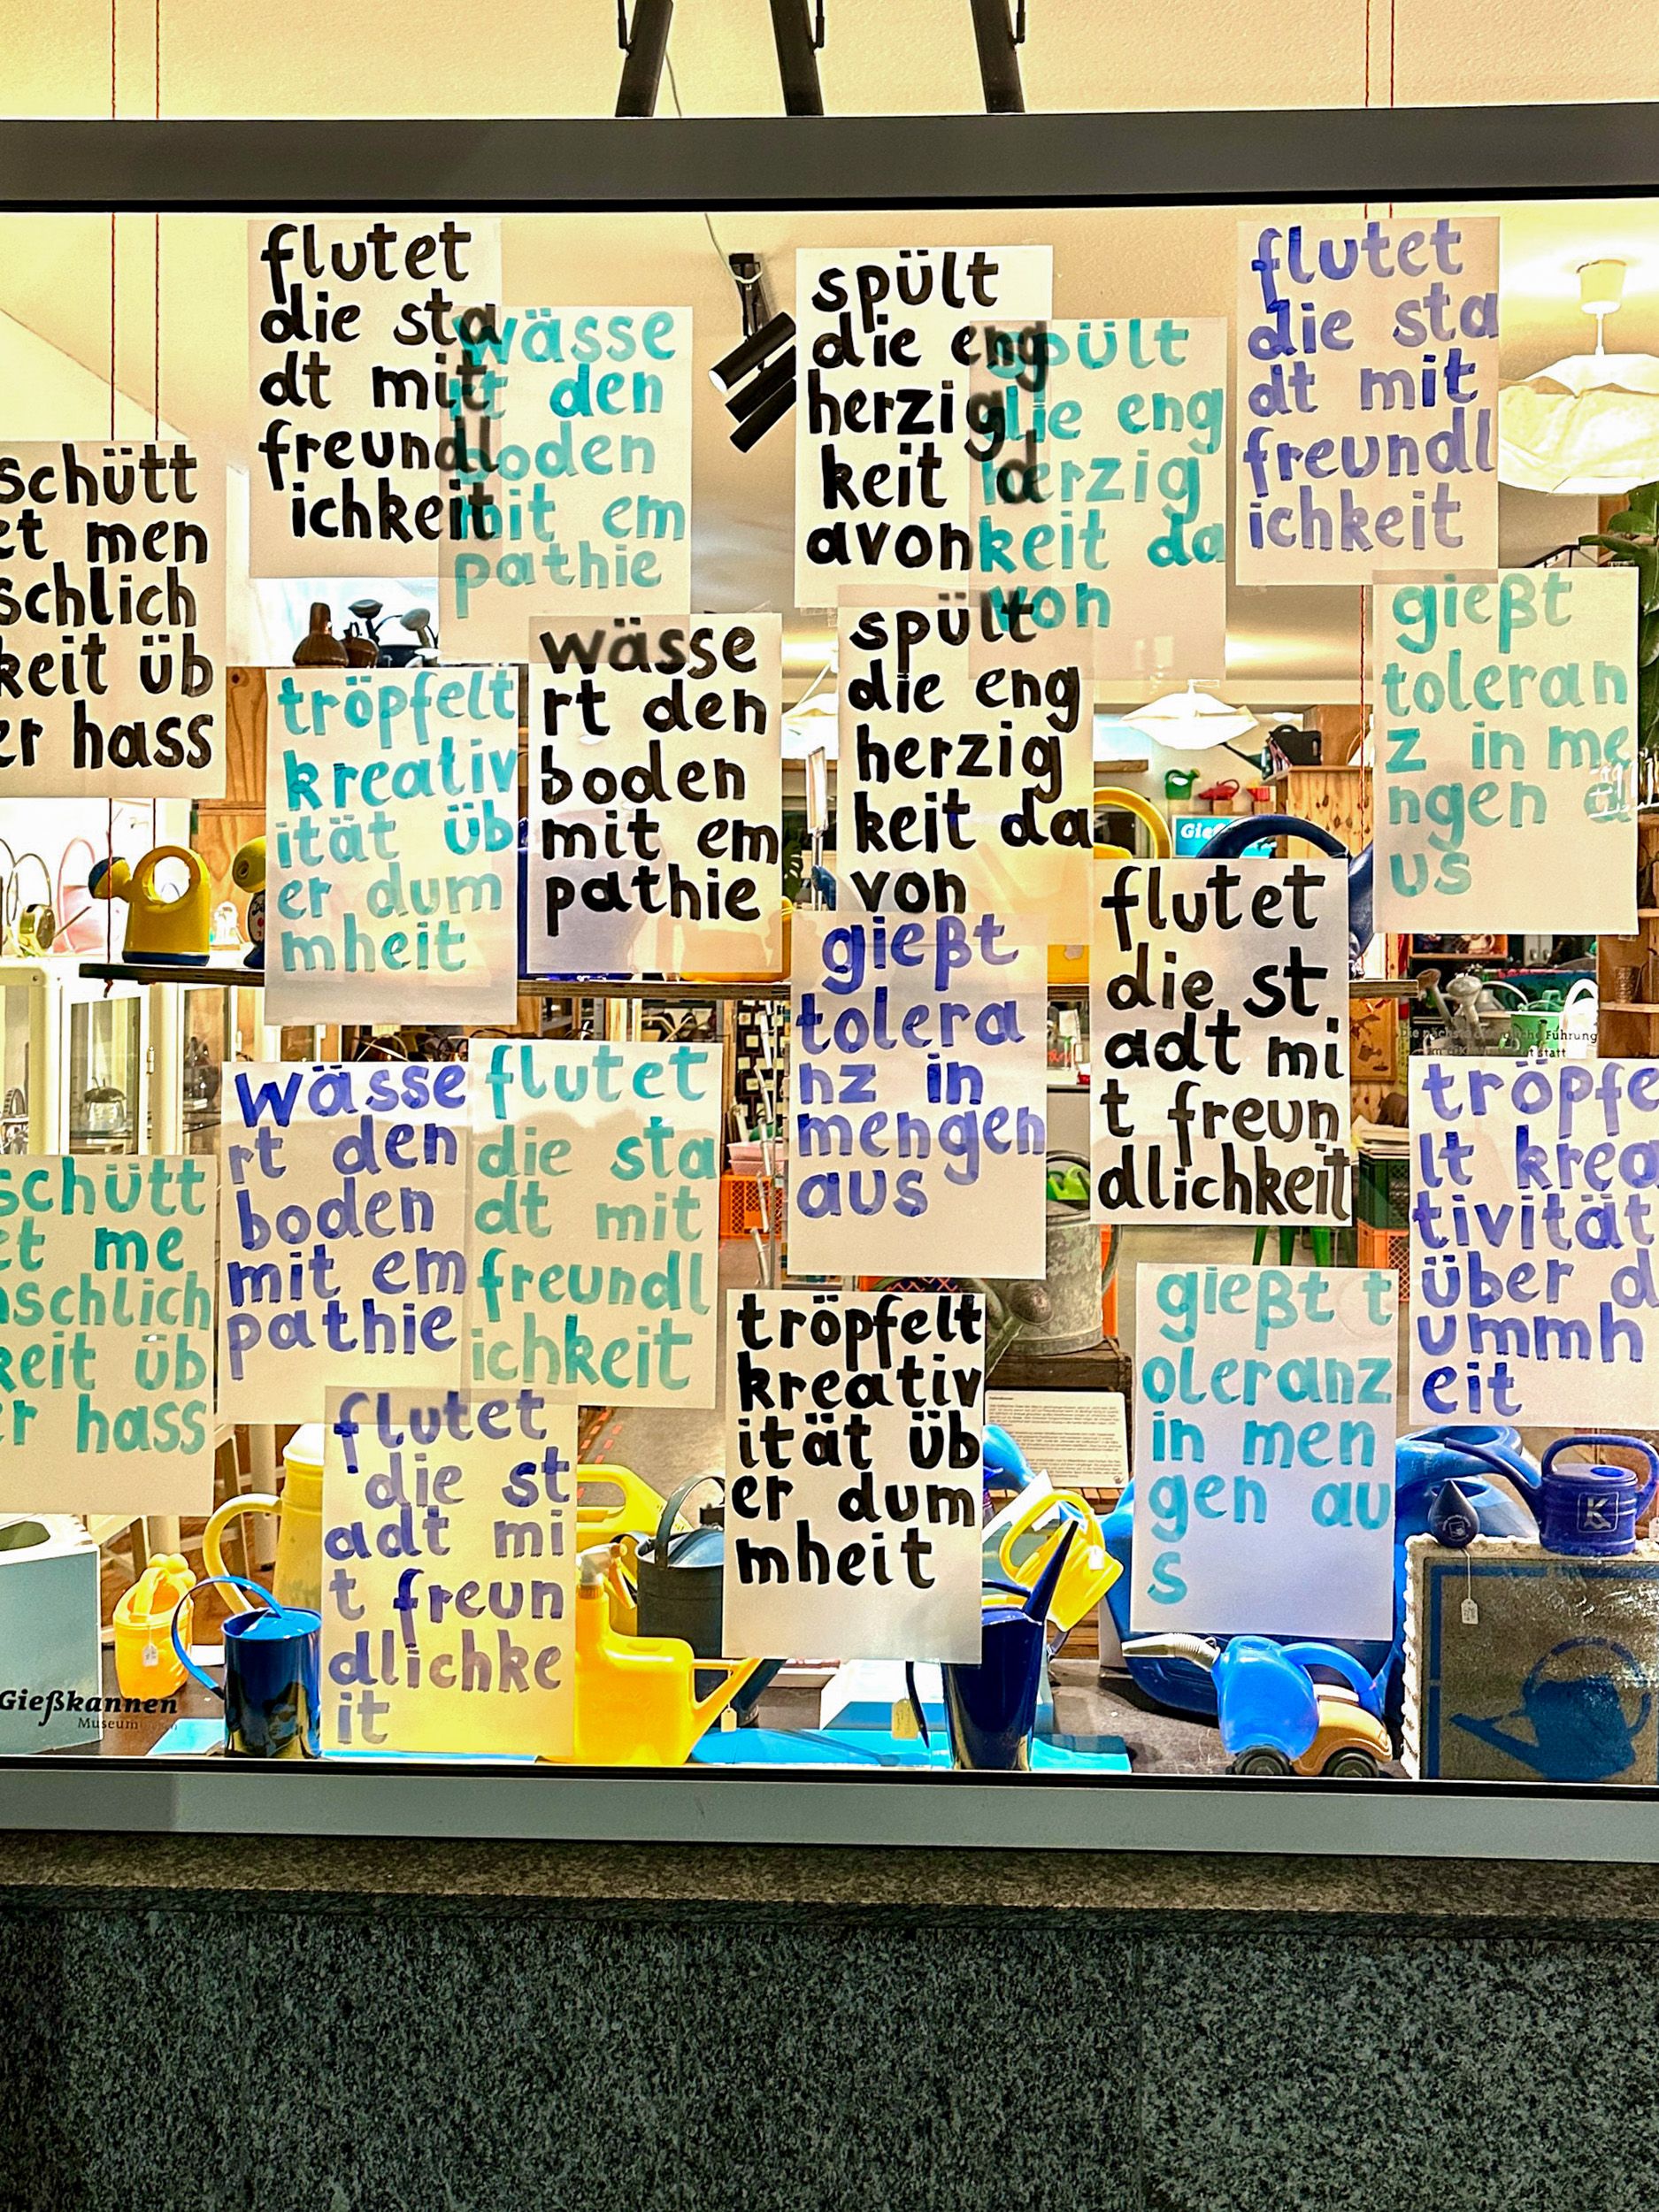 flutet
die sta
dt mit
freundl
ichkeit
wässe
rt den
boden
mit em
pathie
spült
die eng
herzig
keit d
avon
spült
die eng
herzig
keit da
von
flutet
die sta
dt mit
freundl
ichkeit
schütt
et men
schlich
keit üb
er hass
tröpfelt
kreativ
ität üb
er dum
mheit
wässe
rt den
boden
mit em
pathie
spült
die eng
herzig
keit da
von
gießt
toleran
z in me
ngen a
us
gießt
tolera
nz in
mengen
aus
flutet
die st
adt mi
t freun
dlichkeit
schütt
et me
nschlich
keit üb
er hass
wässe
rt den
boden
mit em
pathie
flutet
die sta
dt mit
freundl
ichkeit
tröpfe
lt krea
tivität
über d
ummh
eit
flutet
die st
adt mi
t freun
dlichke
it
tröpfelt
kreativ
ität üb
er dum
mheit
gießt t
oleranz
in men
gen au
s
Gieß
Führung
statt
K
Gießkannen
Museum